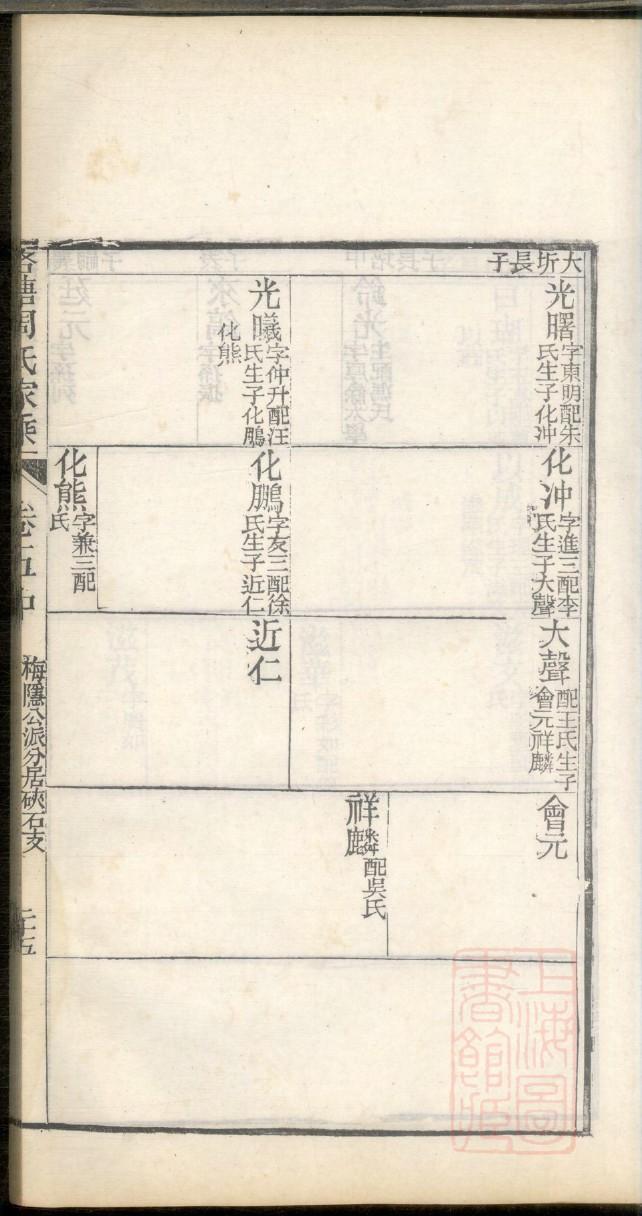 大圻長子
光曙字東明配朱
氏生子化冲
光曦字仲升配汪
氏生子化鵬
化熊
化冲字進三配李
氏生子大聲
化鵬字友三配徐
氏生子近仁
化熊字兼三配
氏
大聲配王氏生子
會元祥麟
近仁
會元
祥麟配吳氏
洛塘周氏家乘
卷五中
梅隱公派分居硤石支
二十五
上海圖
書館藏